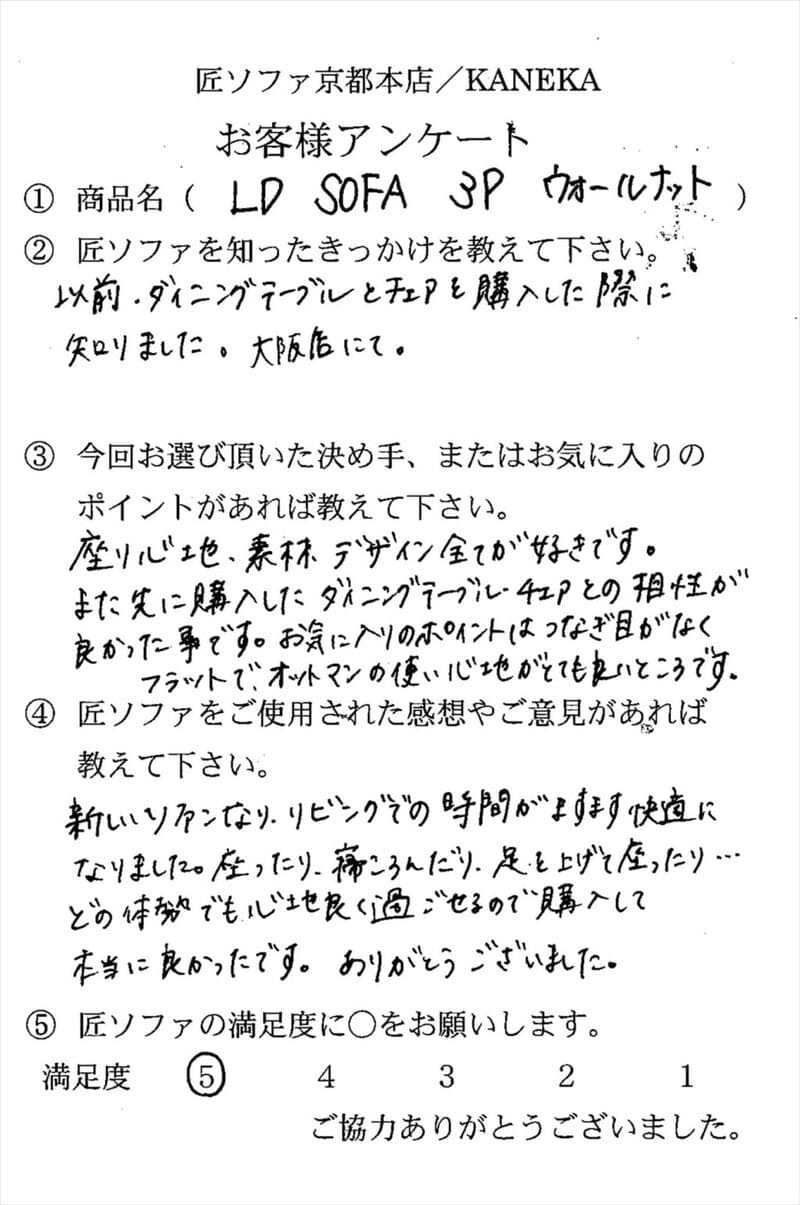 匠ソファ京都本店／KANEKA
お客様アンケート
① 商品名（ LD SOFA 3P ウォールナット ）
② 匠ソファを知ったきっかけを教えて下さい。
以前、ダイニングテーブルとチェアを購入した際に
知りました。大阪店にて。
③ 今回お選び頂いた決め手、またはお気に入りの
ポイントがあれば教えて下さい。
座り心地、素材、デザイン全てが好きです。
また先に購入したダイニングテーブル・チェアとの相性が
良かった事です。お気に入りのポイントはつなぎ目がなく
フラットで、オットマンの使い心地がとても良いところです。
④ 匠ソファをご使用された感想やご意見があれば
教えて下さい。
新しいソファになり、リビングでの時間がますます快適に
なりました。座ったり、寝ころんだり、足を上げて座ったり…
どの体勢でも心地良く過ごせるので購入して
本当に良かったです。ありがとうございました。
⑤ 匠ソファの満足度に〇をお願いします。
満足度 5 4 3 2 1
ご協力ありがとうございました。